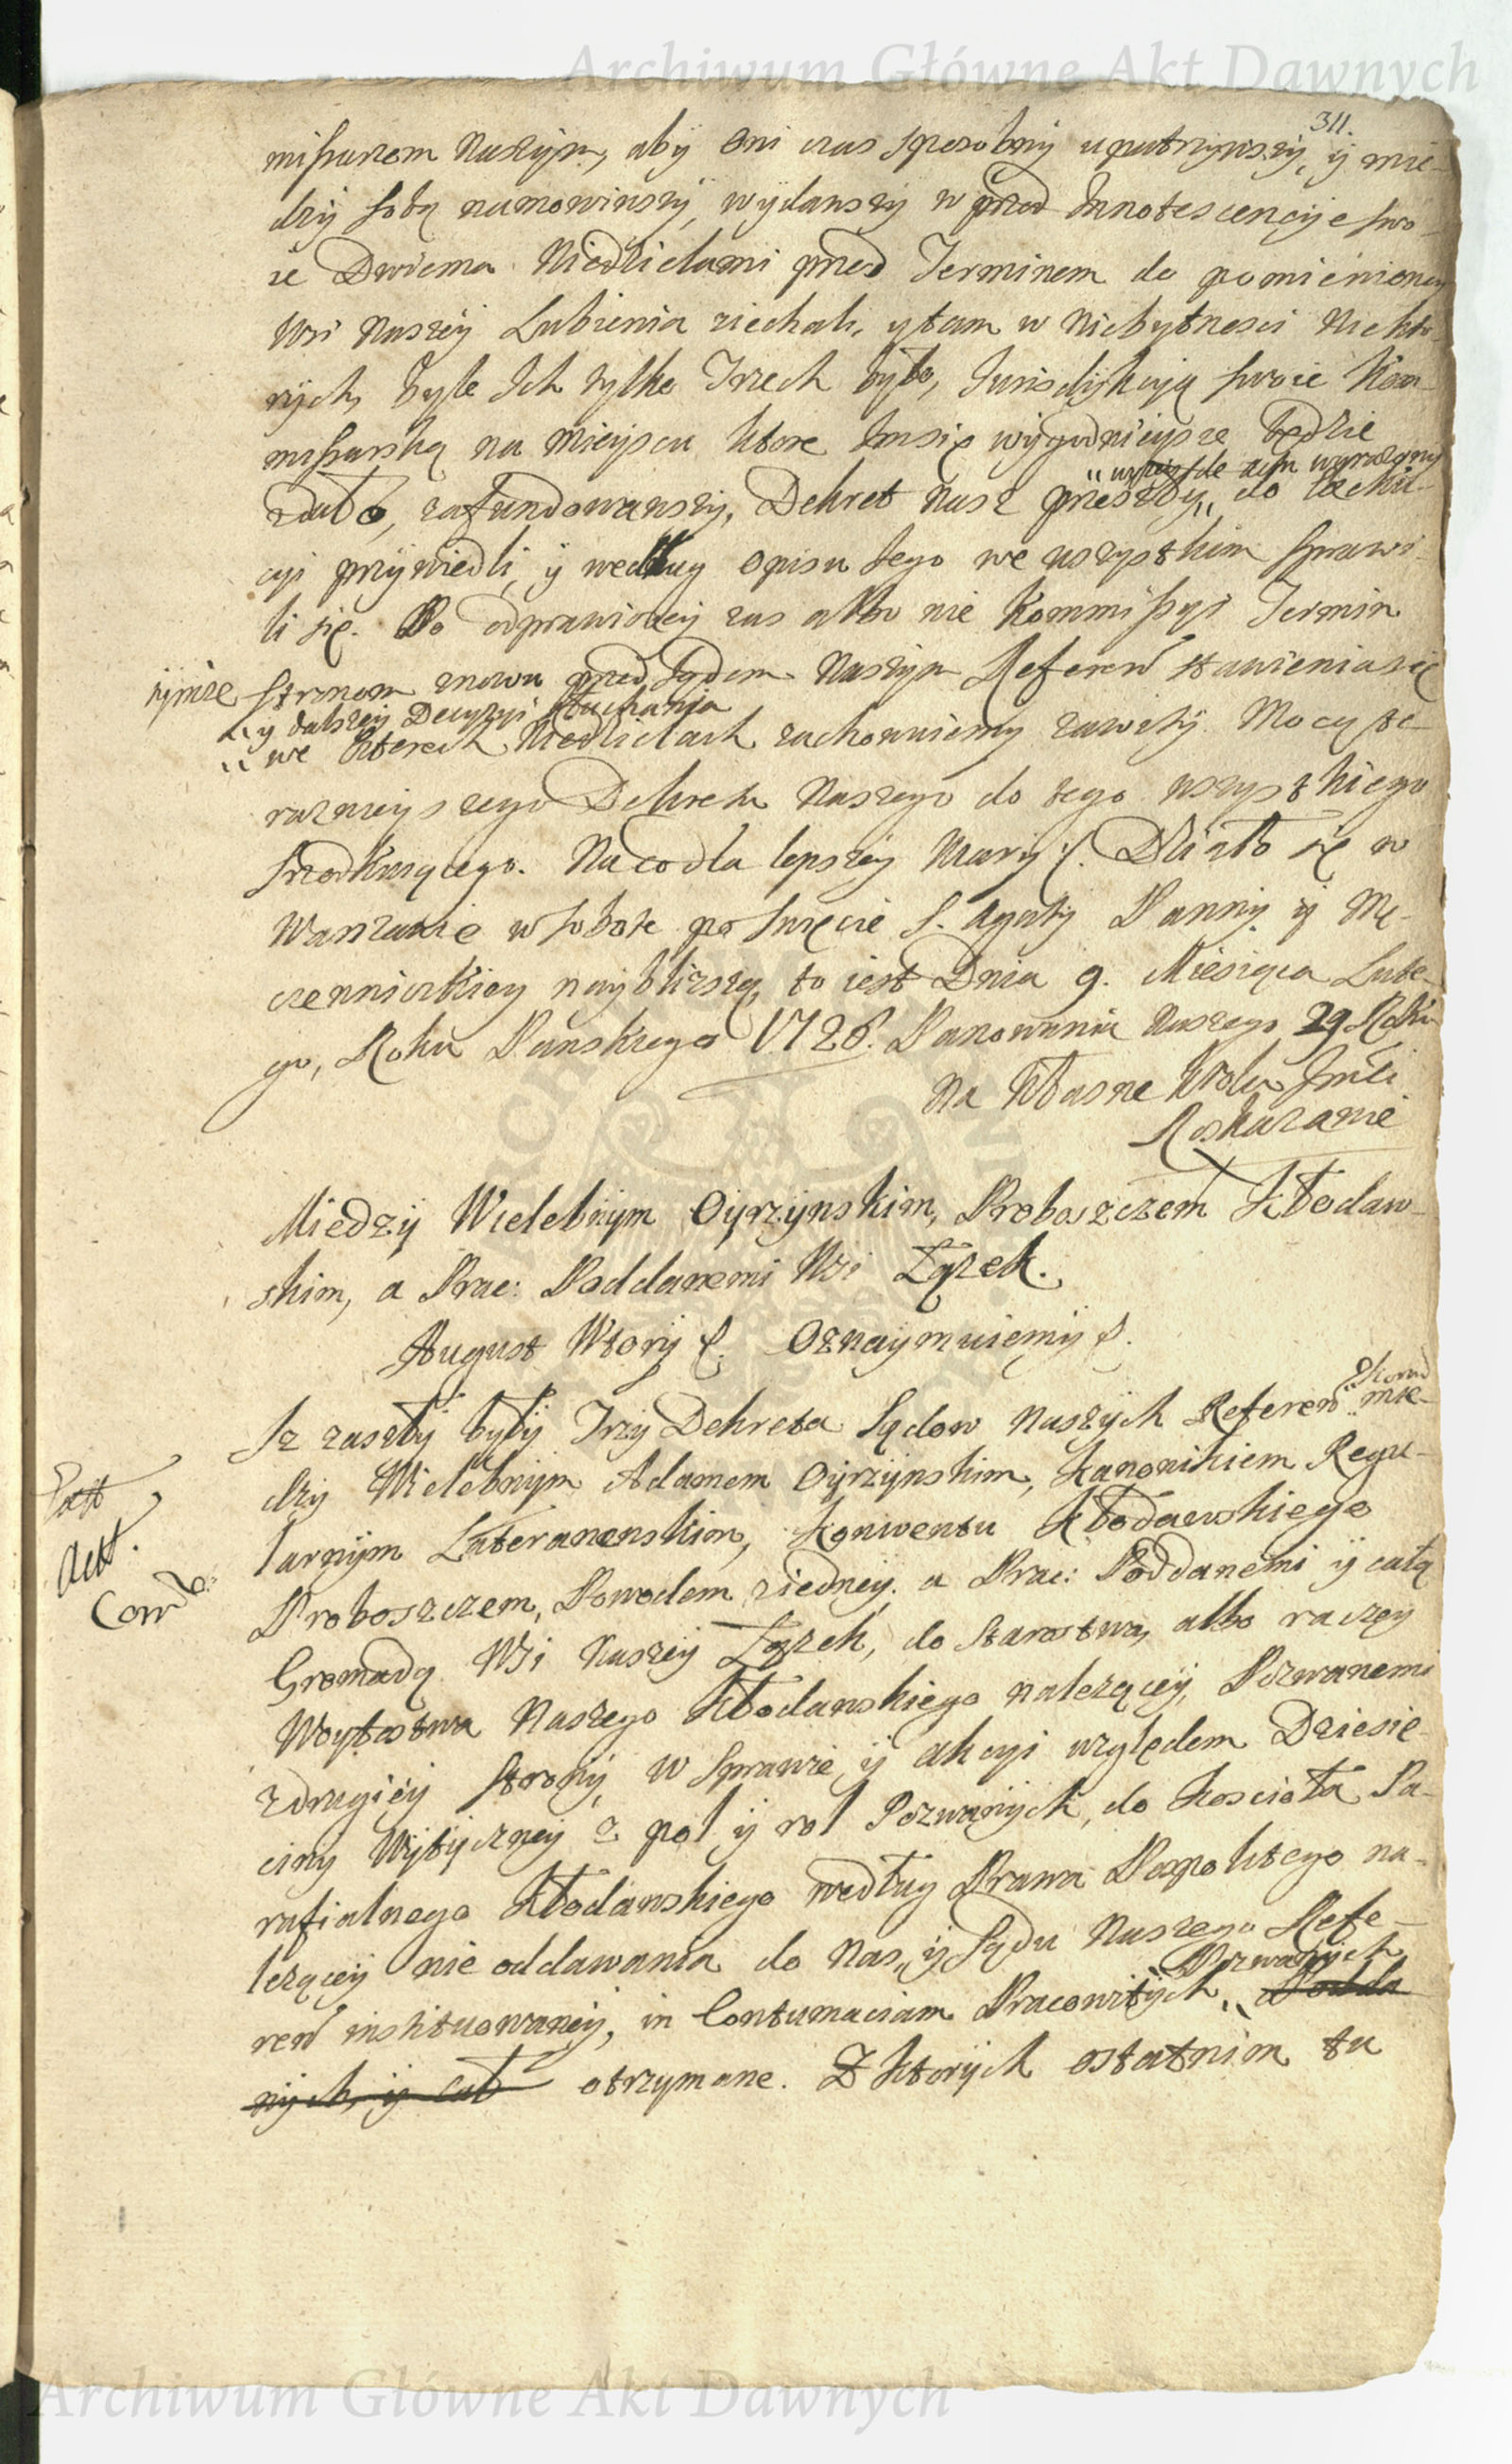 Archiwum Główne Akt Dawnych
311.
missarzom Naszym, aby Oni czas sposobny upatrzywszy, y mie-
dzy sobą namowiwszy, wydawszy w przod Innotescencye swo-
ie Dwiema Niedzielami przed Terminem do pomienioney
Wsi Naszey Lubienia ziechali, y tam w Niebytnosci Niekto-
rych, byle Ich tylko Trzech było, Iurisdykcyą swoie Kom-
missarską na Mieyscu ktore Im się wygodnieysze będzie
zdało, zafundowawszy, Dekret Nasz przeszły,, do Exeku-
cyi przywiedli, y według Opisu Iego we wszystkim sprawi-
li się. Po odprawioney zas albo nie Kommissyi Termin
tymże Stronom znowu przed Sądem Naszym Referen̄ stawienia się
,, y dalszey Decyzyi słuchania
,, we Czterech Niedzielach zachowuiemy zawity. Mocą te-
raznieyszego Dekretu Naszego do tego wszystkiego
srzodkuiącego. Na co dla lepszey Wiary &. Działo się w
Warszawie w Sobotę po Swięcie S. Agaty Panny y Mę-
czenniczkiey naybliższą, to iest Dnia 9. Miesiąca Lute-
go, Roku Panskiego 1726. Panowania Naszego 29 Roku
Na Własne Krola Jmści
Roskazanie
Miedzy Wielebnym Oyrzynskim, Proboszczem Kłodaw-
skim, a Prac: Poddanemi Wsi Łązek.
August Wtory &. Oznaymuiemy &.
Iz zaszły były Trzy Dekreta Sądow Naszych Referen̄ mie-
dzy Wielebnym Adamem Oyrzynskim, Kanonikiem Regu-
larnym Lateranenskim, Konwentu Kłodawskiego
Proboszczem, Powodem z iedney, a Prac: Poddanemi y całą
Gromadą Wsi Naszey Łązek, do Starostwa, albo raczey
Woytostwa Naszego Kłodawskiego należącey, Pozwanemi
z drugiey strony, w Sprawie y akcyi względem Dziesię-
ciny Wytyczney z pol y rol Pozwanych, do Koscioła Pa-
rafialnego Kłodawskiego według Prawa Pospolitego na-
leżącey nie oddawania do Nas,, y Sądu Naszego Refe-
ren̄ instituowaney, in Contumaciam Pracowitych,, Pozwanych Podda
nych, y cał otrzymane. Z ktorych ostatnim tu
Act.
Archiwum Główne Akt Dawnych